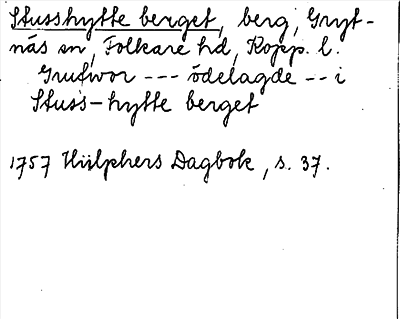 Stusshytte berget, berg, Gryt-
näs sn, Folkare hd, Kopp. l.
Grufwor --- ödelagde -- i
Stuss-hytte berget
1757 Hülphers Dagbok, s. 37.